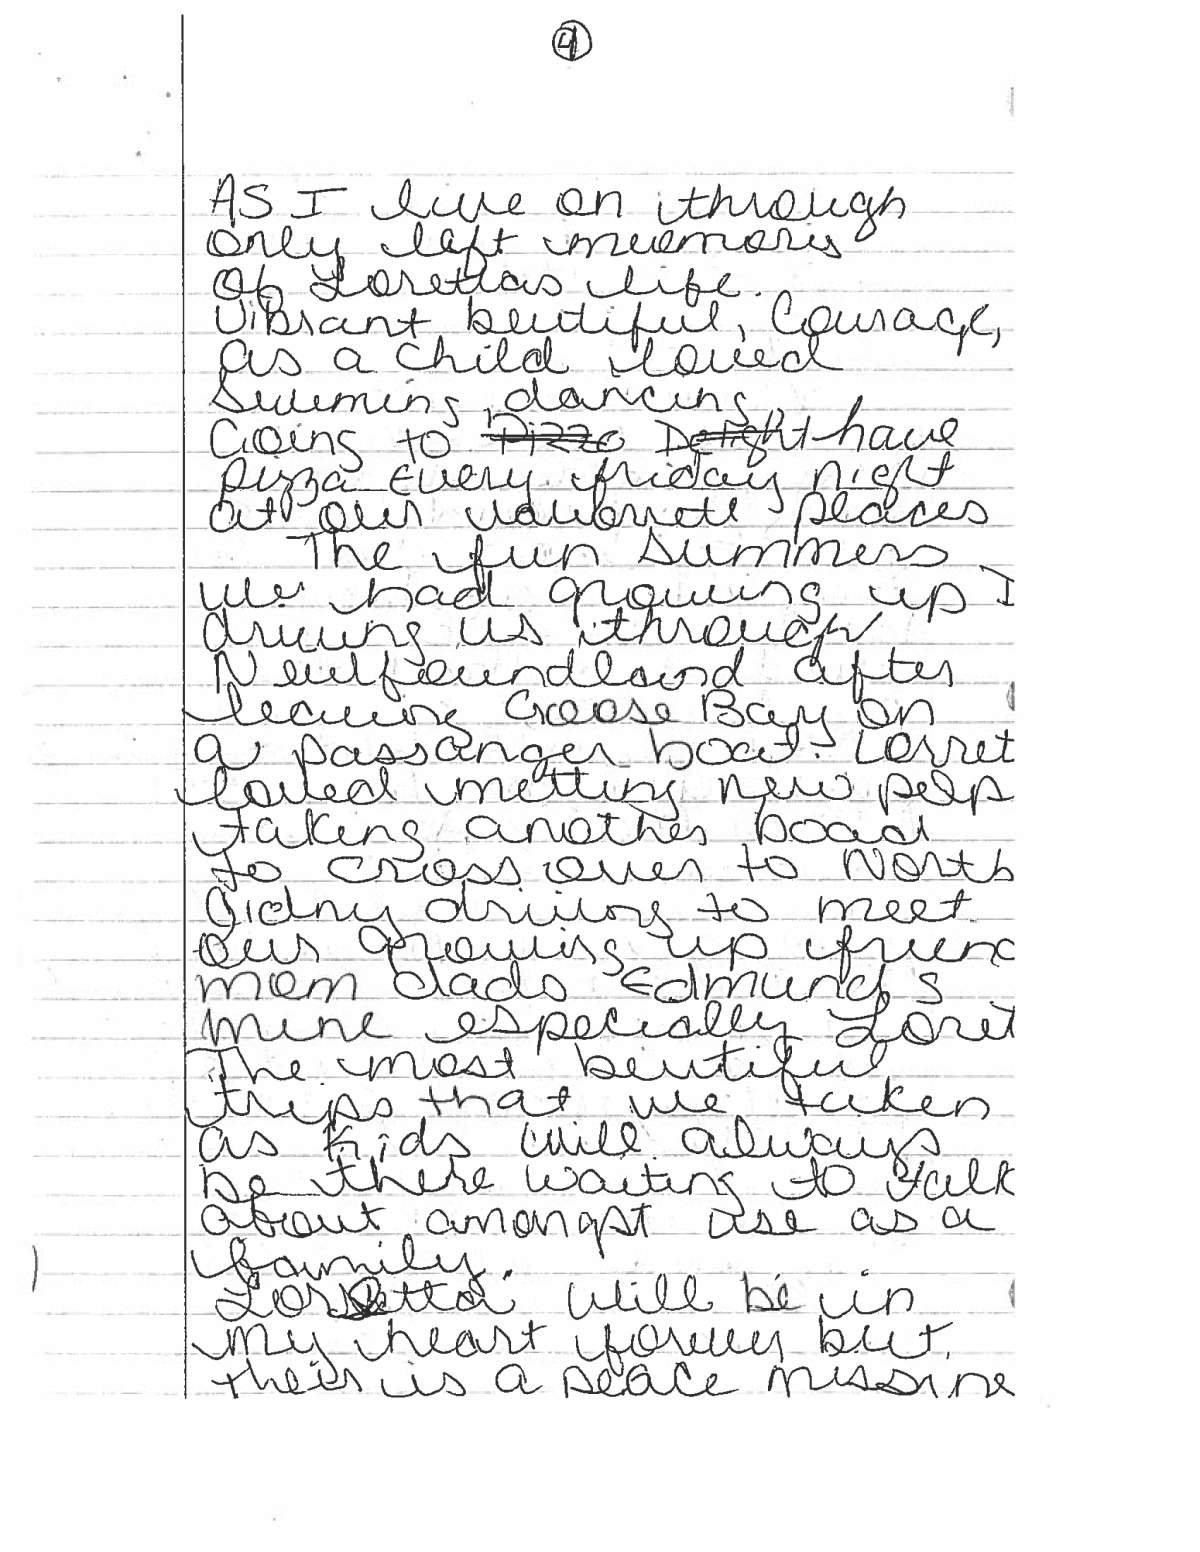 4
AS I live on through
only left memorys
of Lorettas life.
Vibrant beutiful, Courage,
as a child loved
Swiming, dancing,
Going to Pizza Delight have
pizza Every friday night
at our vavorrette places
The fun summers
we had growing up I
driving us through
Newfoundland after
leaving Goose Bay on
a passanger boat. Lorret
loved metting new pelp
taking another boad
to cross over to North
Sidny driving to meet
our growing up frien
mom dads Edmunds
mine especially Loret
The most beutiful
trips that we taken
as kids will always
be there waiting to talk
about amongst use as a
family.
Loretta will be in
my heart forever but,
theis is a peace missing